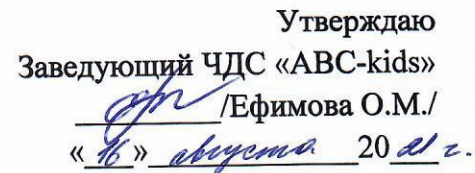 Утверждаю
Заведующий ЧДС «ABC-kids»
/Ефимова О.М./
«16» августа 2021 г.